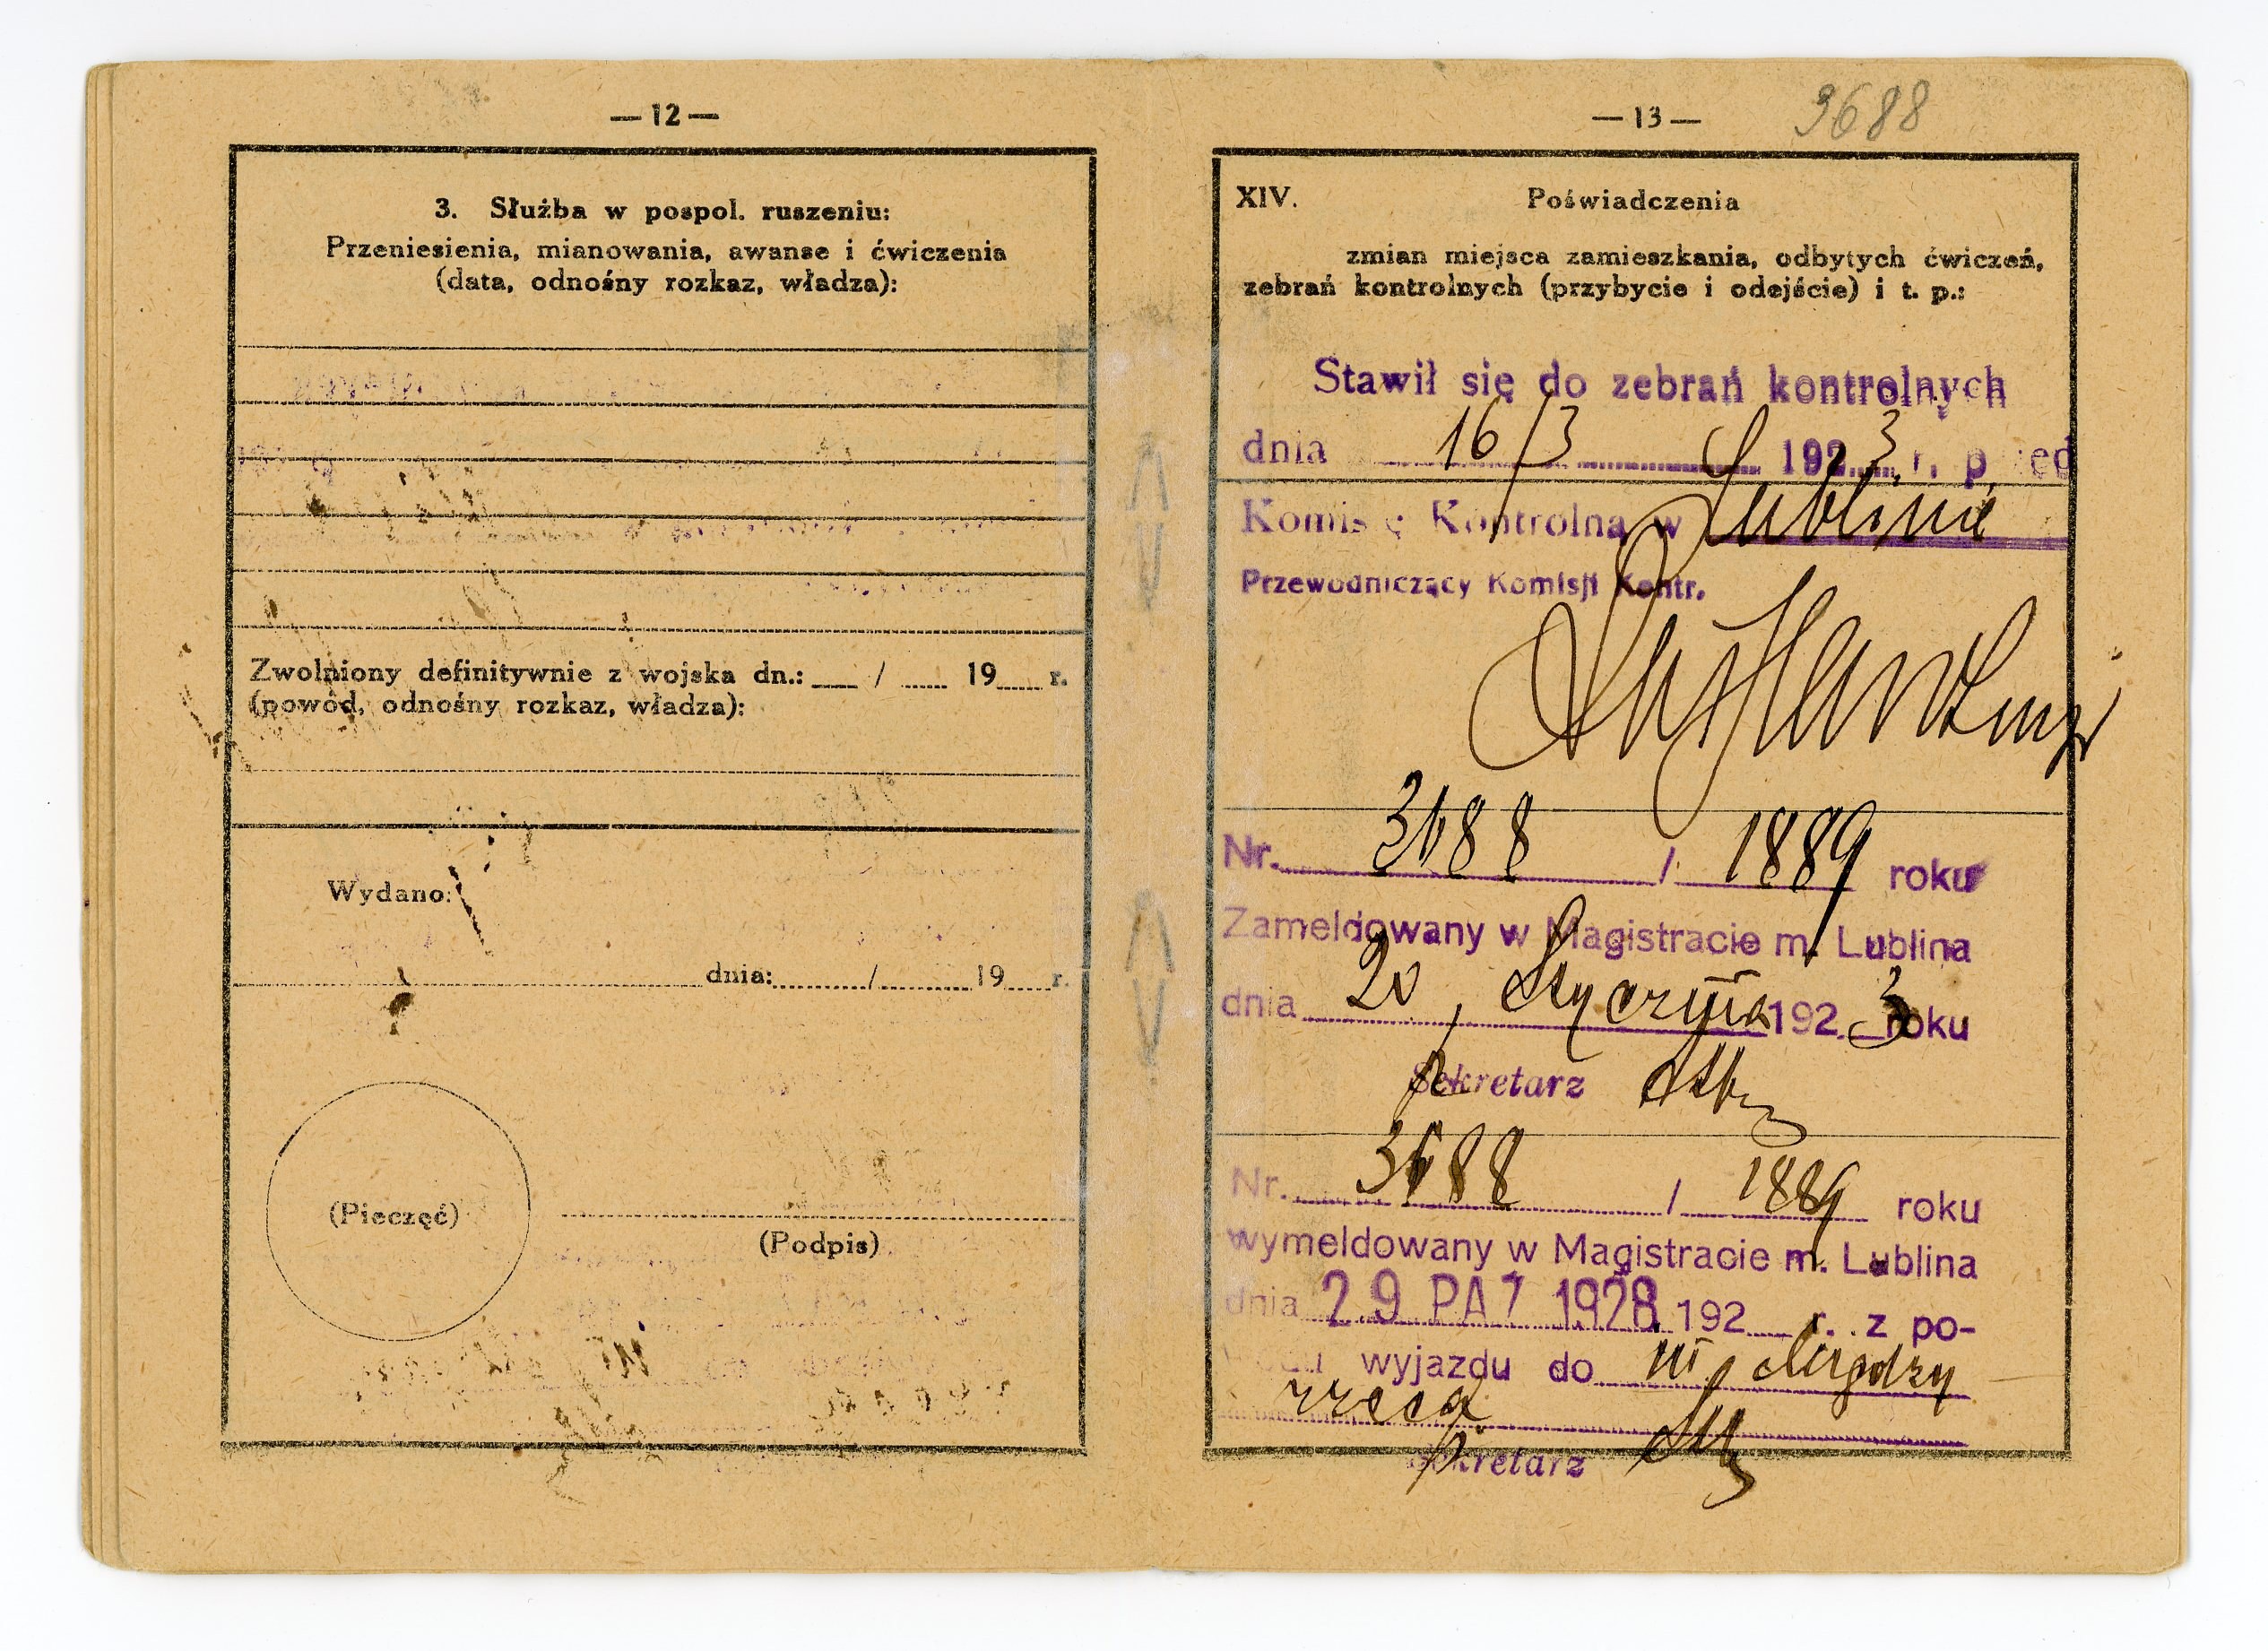 — 12 —
3. Służba w pospol. ruszeniu:
Przeniesienia, mianowania, awanse i ćwiczenia
(data, odnośny rozkaz, władza):
Zwolniony definitywnie z wojska dn.: / 19 r.
(powód, odnośny rozkaz, władza):
Wydano:
dnia: / 19 r.
(Pieczęć)
(Podpis)
— 13 —
3688
XIV. Poświadczenia
zmian miejsca zamieszkania, odbytych ćwiczeń,
zebrań kontrolnych (przybycie i odejście) i t. p.:
Stawił się do zebrań kontrolnych
dnia 16/3 1923 r. p ed
Komis ę Kontrolną w Lublinie
Przewodniczący Komisji Kontr.
Nr. 3688 / 1889 roku
Zameldowany w Magistracie m. Lublina
dnia 20 Stycznia 1923 roku
Sekretarz
Nr. 3688 / 1889 roku
wymeldowany w Magistracie m. Lublina
dnia 29 PAŹ 1928 192 r. z po-
wodu wyjazdu do m. Między
rzeca
Sekretarz